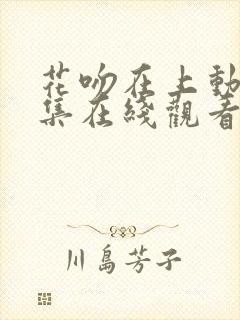 花吻在上動
集在綫觀看
川島芳子